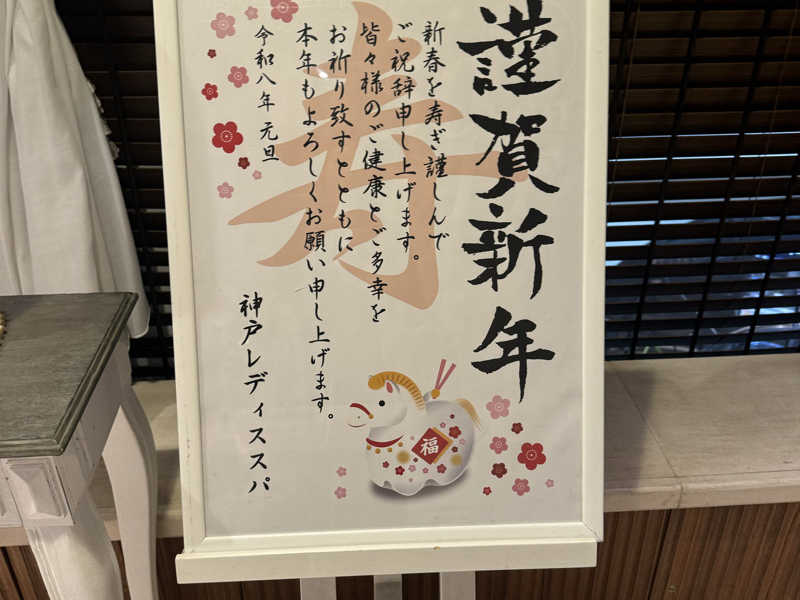 謹賀新年
寿
新春を寿ぎ謹しんで
ご祝辞申し上げます。
皆々様のご健康とご多幸を
お祈り致すとともに
本年もよろしくお願い申し上げます。
令和八年 元旦
神戸レディススパ
福